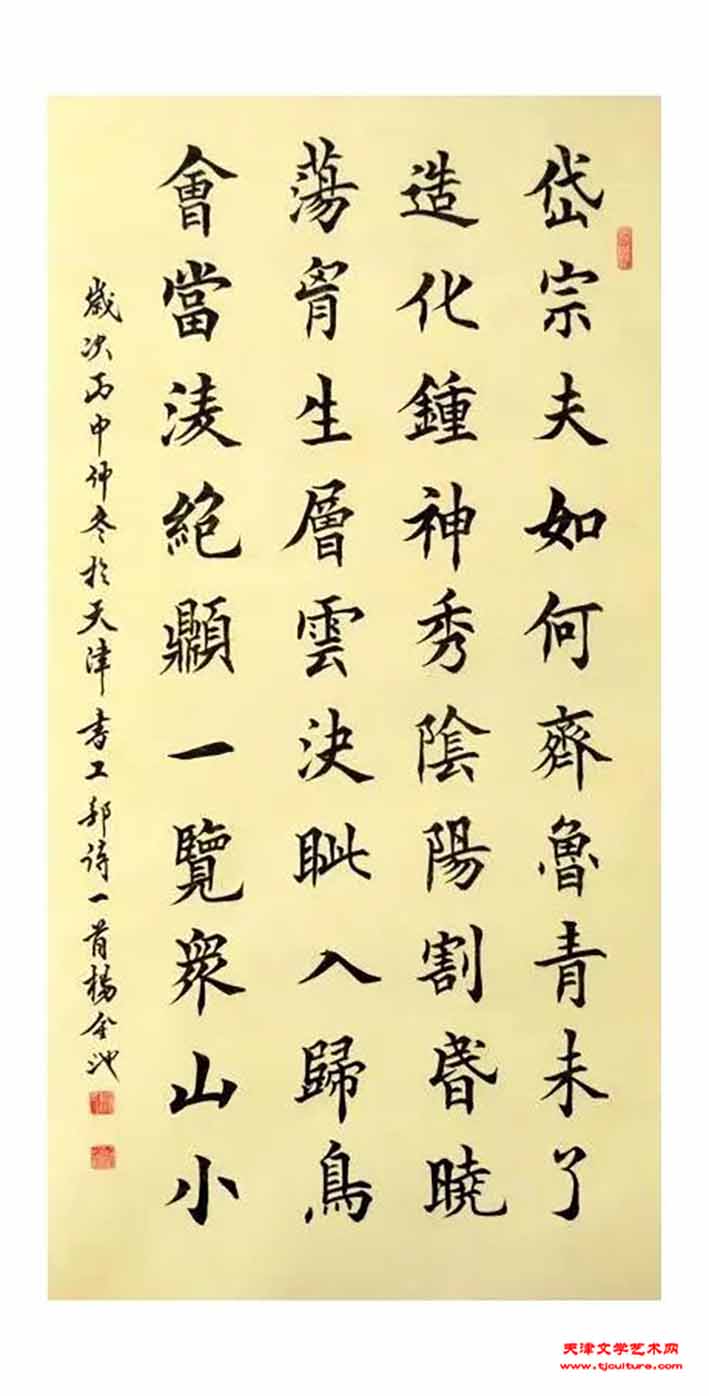 岱宗夫如何齊魯青未了
造化鍾神秀陰陽割昬曉
蕩胷生層雲決眦入歸鳥
會當淩絶𩕢一覽衆山小
歲次丙申仲冬於天津書工部詩一首楊金池
天津文学艺术网
www.tjculture.com